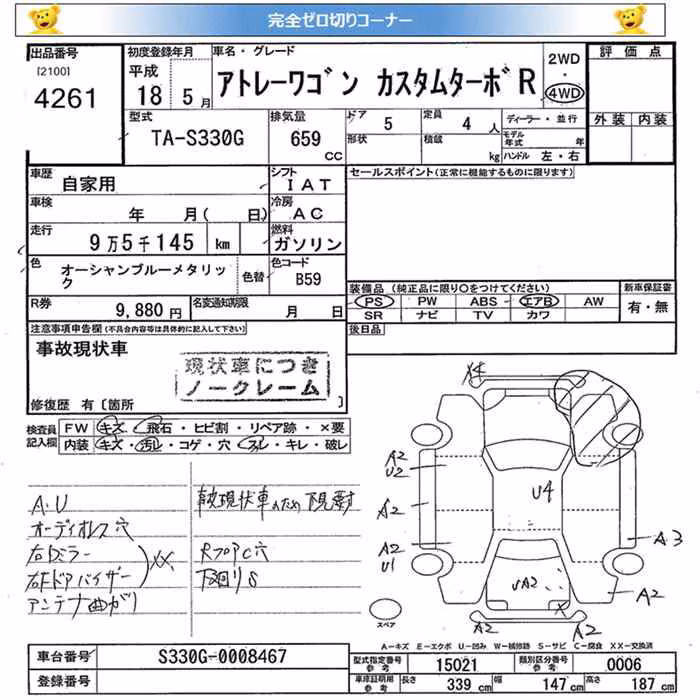 完全ゼロ切りコーナー
出品番号
[2100]
4261
初度登録年月
平成
18 5月
車名・グレード
アトレーワゴン カスタムターボR
2WD
・
4WD
評価点
外装 内装
型式
TA-S330G
排気量
659
CC
ドア
5
形状
定員
4人
積載
kg
ディーラー・並行
モデル年式 年
ハンドル 左・右
車歴
自家用
シフト
IAT
セールスポイント(正常に機能するものに限ります)
車検
年 月( 日)
冷房
AC
走行
9万5千145 km
燃料
ガソリン
色
オーシャンブルーメタリック
色替
色コード
B59
R券
9,880円
名変通知期限
月 日
装備品(純正品に限り○をつけてください)
PS PW ABS エアB AW
SR ナビ TV カワ
新車保証書
有・無
後日品
注意事項申告欄(不具合内容等は具体的に記入して下さい)
事故現状車
現状車につき
ノークレーム
修復歴 有〔箇所 〕
検査員記入欄
FW キズ・飛石・ヒビ割・リペア跡・×要
内装 キズ・汚レ・コゲ・穴・スレ・キレ・破レ
A.U
オーディオレス穴
右Dミラー
右FドアバイザーXX
アンテナ曲がり
事故現状車のため下見要す
RフロアC穴
下回りS
X4
A2
U2
A2
A2
U1
U4
A3
UA2
X
A2
A2
A2
スペア
A-キズ E-エクボ U-凹み W-補修跡 S-サビ C-腐食 XX-交換済
車台番号
S330G-0008467
登録番号
型式指定番号
参考
15021
類別区分番号
参考
0006
車庫証明用
参考
長さ 339 cm
幅 147 cm
高さ 187 cm